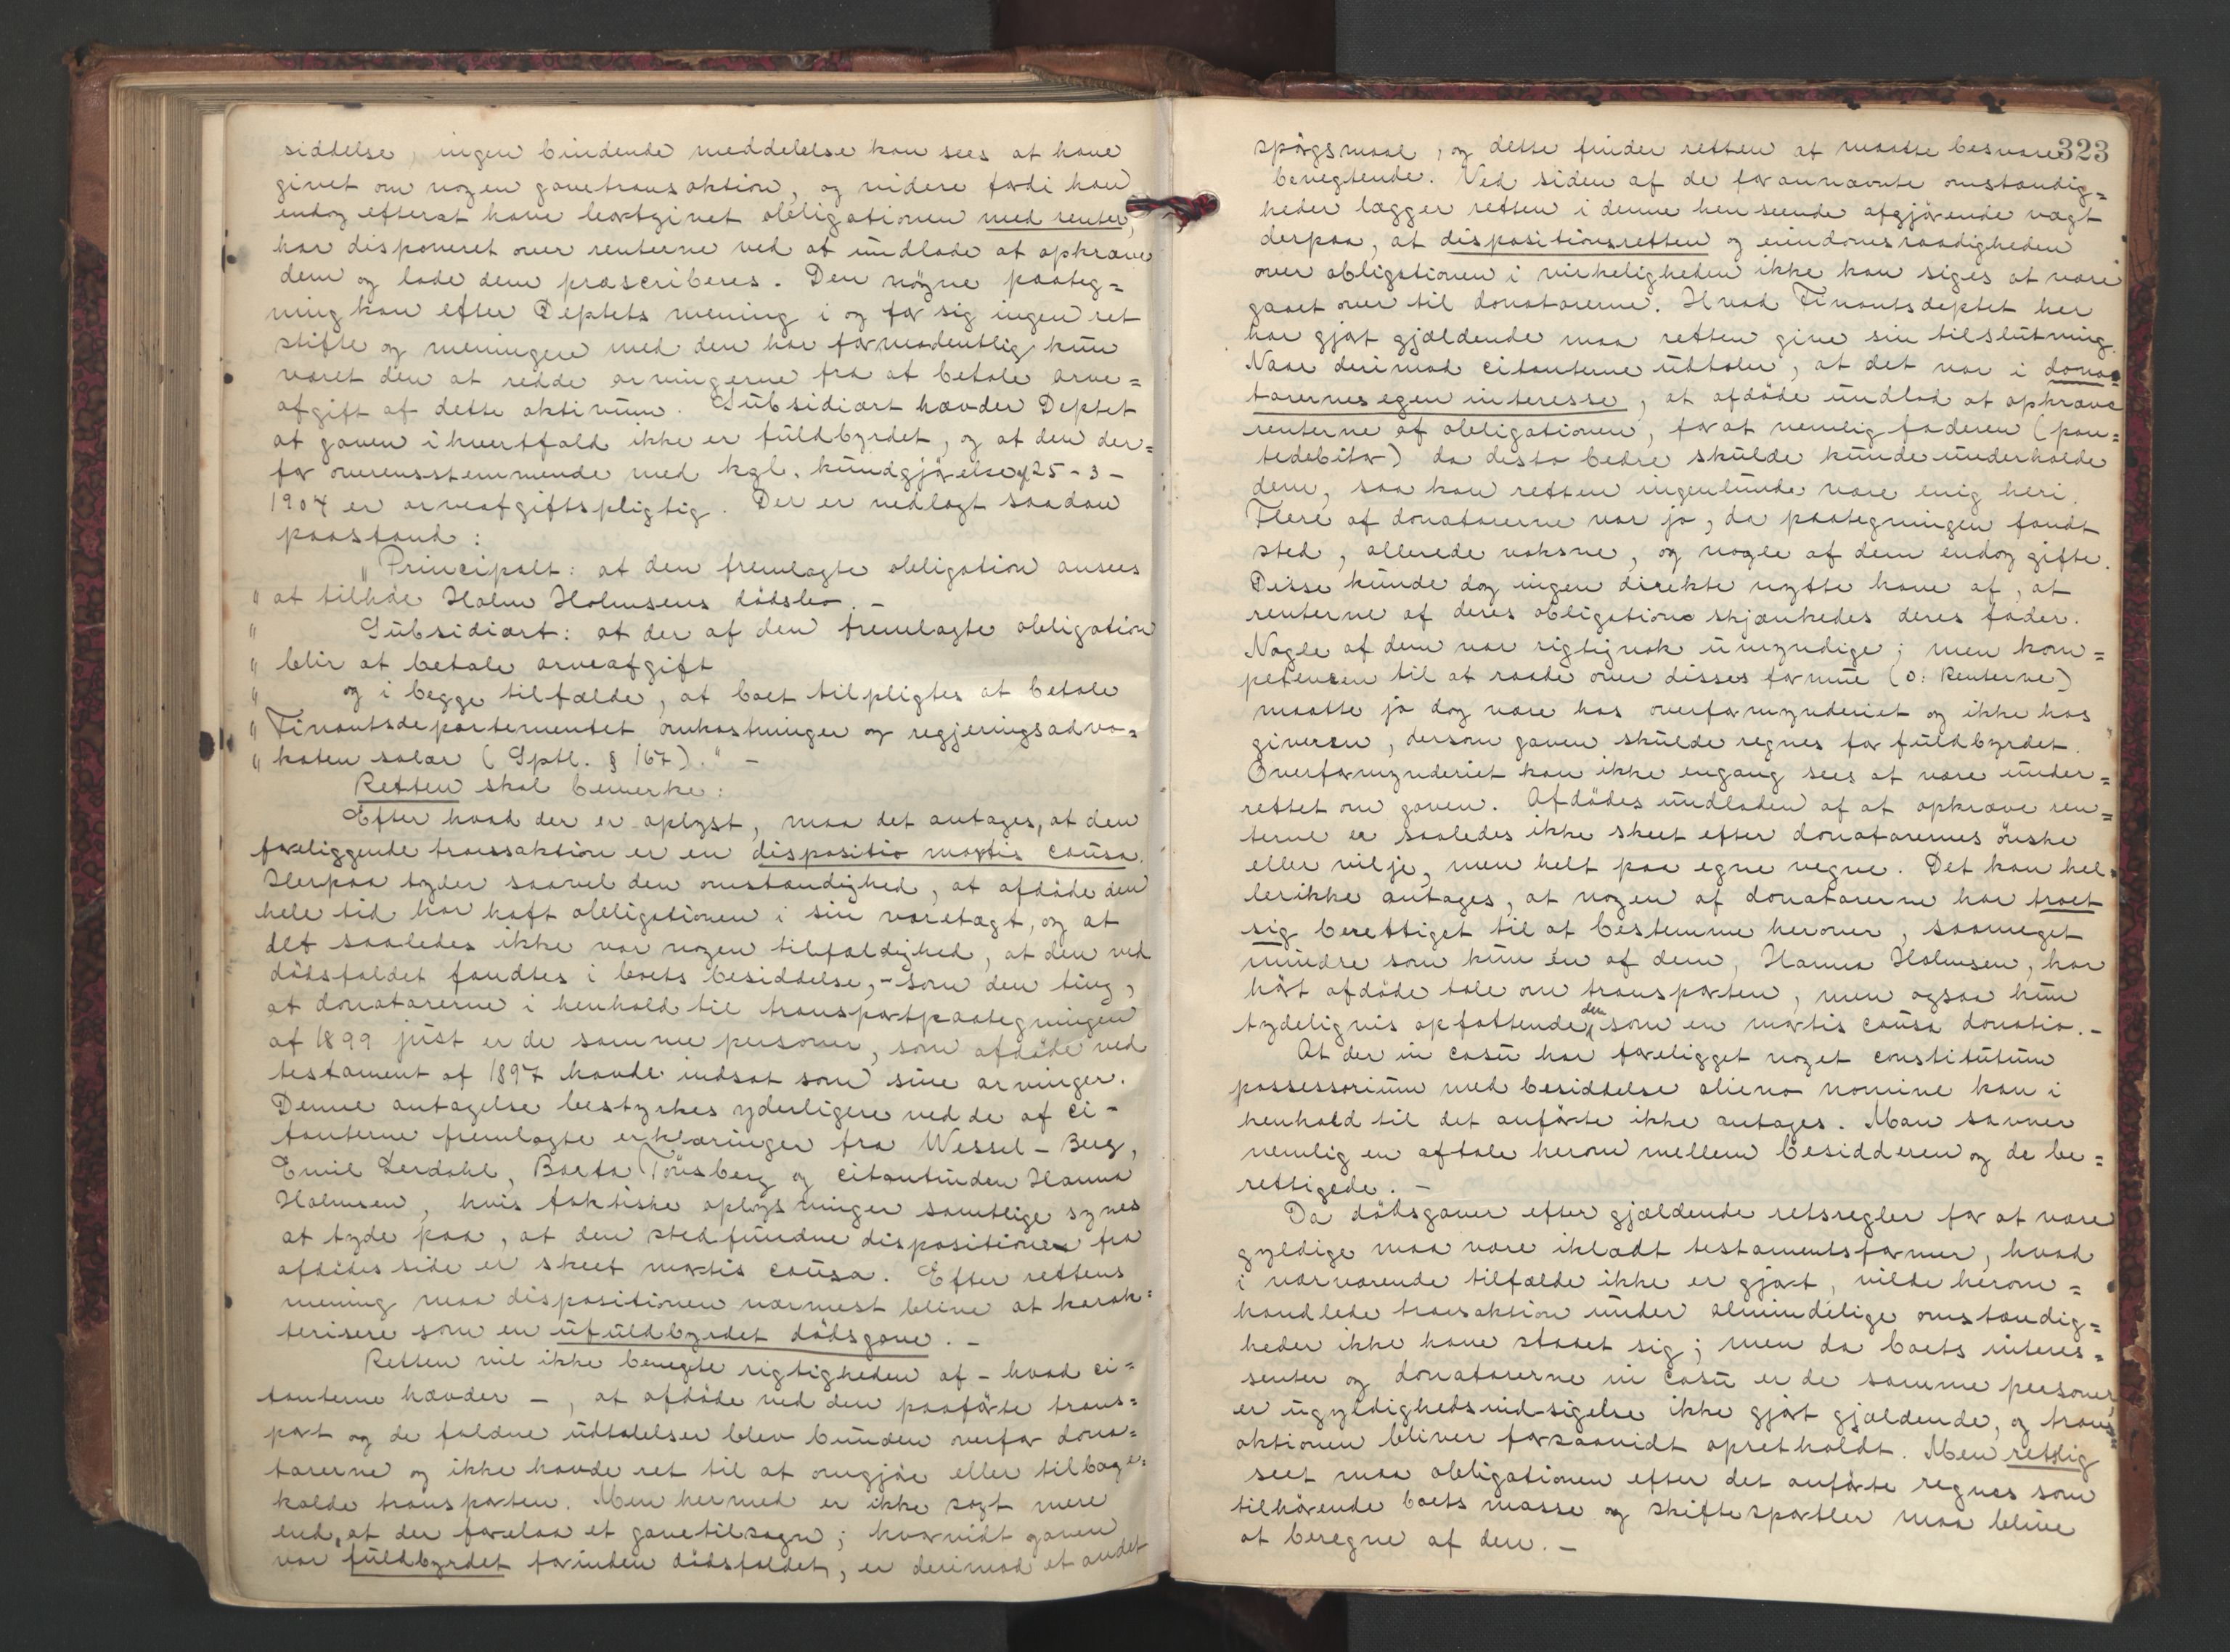 siddelse, ingen bindende meddelelse kan sees at have
givet om nogen gavetransaktion, og videre fordi han
endog efterat have bortgivet obligationen med renter,
har disponeret over renterne ved at undlade at opkræve
dem og lade dem præscriberes. Den nøgne paateg=
ning kan efter Deptets mening i og for sig ingen ret
stifte og meningen med den har formodentlig kun
været den at redde arvingerne fra at betale arve=
afgift af dette aktivum. Subsidiært hævder Deptet
at gaven ihvertfald ikke er fuldbyrdet, og at den der=
for overensstemmende med kgl. kundgjørelse af 25-3-
1904 er arveafgiftspligtig. Der er nedlagt saadan
paastand:
„Principalt: at den fremlagte obligation ansees
„ at tilhøre Holm Holmsens dødsbo. –
„ Subsidiært: at der af den fremlagte obligation
„ blir at betale arveafgift
„ og i begge tilfælde, at boet tilpligtes at betale
„ Finantsdepartementet omkostninger og regjeringsadvo=
„ katen salær (Sptl. § 167)." –
Retten skal bemerke:
Efter hvad der er oplyst, maa det antages, at den
foreliggende transaktion er en dispositio mortis causa.
Herpaa tyder saavel den omstændighed, at afdøde den
hele tid har haft obligationen i sin varetægt, og at
det saaledes ikke var nogen tilfældighed, at den ved
dødsfaldet fandtes i boets besiddelse, – som den ting,
at donatarerne i henhold til transportpaategningen
af 1899 just er de samme personer, som afdøde ved
testament af 1897 havde indsat som sine arvinger.
Denne antagelse bestyrkes yderligere ved de af ci-
tanterne fremlagte erklæringer fra Wessel-Berg,
Emil Lerdahl, Borta Tønsberg og citantinden Hanna
Holmsen, hvis faktiske oplysninger samtlige synes
at tyde paa, at den stedfundne disposition fra
afdødes side er skeet mortis causa. Efter rettens
mening maa dispositionen nærmest blive at karak=
terisere som en ufuldbyrdet dødsgave. –
Retten vil ikke benegte rigtigheden af – hvad ci=
tanterne hævder –, at afdøde ved den paaførte trans=
port og de faldne udtalelser blev bunden overfor dona=
tarerne og ikke havde ret til at omgjøre eller tilbage=
kalde transporten. Men hermed er ikke sagt mere
end, at der forelaa et gavetilsagn; hvorvidt gaven
var fuldbyrdet forinden dødsfaldet, er derimod et andet
323
spørgsmaal, og dette finder retten at maatte besvare
benegtende. Ved siden af de forannævnte omstændig=
heder lægger retten i denne henseende afgjørende vægt
derpaa, at dispositionsretten og eiendomsraadigheden
over obligationen i virkeligheden ikke kan siges at være
gaaet over til donatarerne. Hvad Finantsdeptet her
har gjort gjældende maa retten give sin tilslutning.
Naar derimod citanterne udtaler, at det var i dona=
tarernes egen interesse, at afdøde undlod at opkræve
renterne af obligationen, for at nemlig faderen (pan=
tedebitor) da desto bedre skulde kunde underholde
dem, saa kan retten ingenlunde være enig heri.
Flere af donatarerne var jo, da paategningen fandt
sted, allerede voksne, og nogle af dem endog gifte.
Disse kunde dog ingen direkte nytte have af, at
renterne af deres obligation skjænkedes deres fader.
Nogle af dem var rigtignok umyndige; men kom=
petencen til at raade over disses formue (ɔ: Renterne)
maatte jo dog være hos overformynderiet og ikke hos
giveren, dersom gaven skulde regnes for fuldbyrdet.
Overformynderiet kan ikke engang sees at være under=
rettet om gaven. Afdødes undladen af at opkræve ren=
terne er saaledes ikke skeet efter donatarernes ønske
eller vilje, men helt paa egne vegne. Det kan hel=
lerikke antages, at nogen af donatarerne har troet
sig berettiget til at bestemme herover, saameget
mindre som kun én af dem, Hanna Holmsen, har
hørt afdøde tale om transporten, men ogsaa hun
tydeligvis opfattende den som en mortis causa donatio. –
At der in casu har foreligget noget constitutum
possessorium med besiddelse alieno nomine kan i
henhold til det anførte ikke antages. Man savner
nemlig en aftale herom mellem besidderen og de be=
rettigede. –
Da dødsgaver efter gjældende retsregler for at være
gyldige maa være iklædt testamentsformer, hvad
i nærværende tilfælde ikke er gjort, vilde herom=
handlede transaktion under almindelige omstændig=
heder ikke have staaet sig; men da boets interes=
senter og donatarerne in casu er de samme personer,
er ugyldighedsindsigelse ikke gjort gjældende, og trans=
aktionen bliver forsaavidt opretholdt. Men retslig
seet maa obligationen efter det anførte regnes som
tilhørende boets masse og skiftesportler maa blive
at beregne af den. –